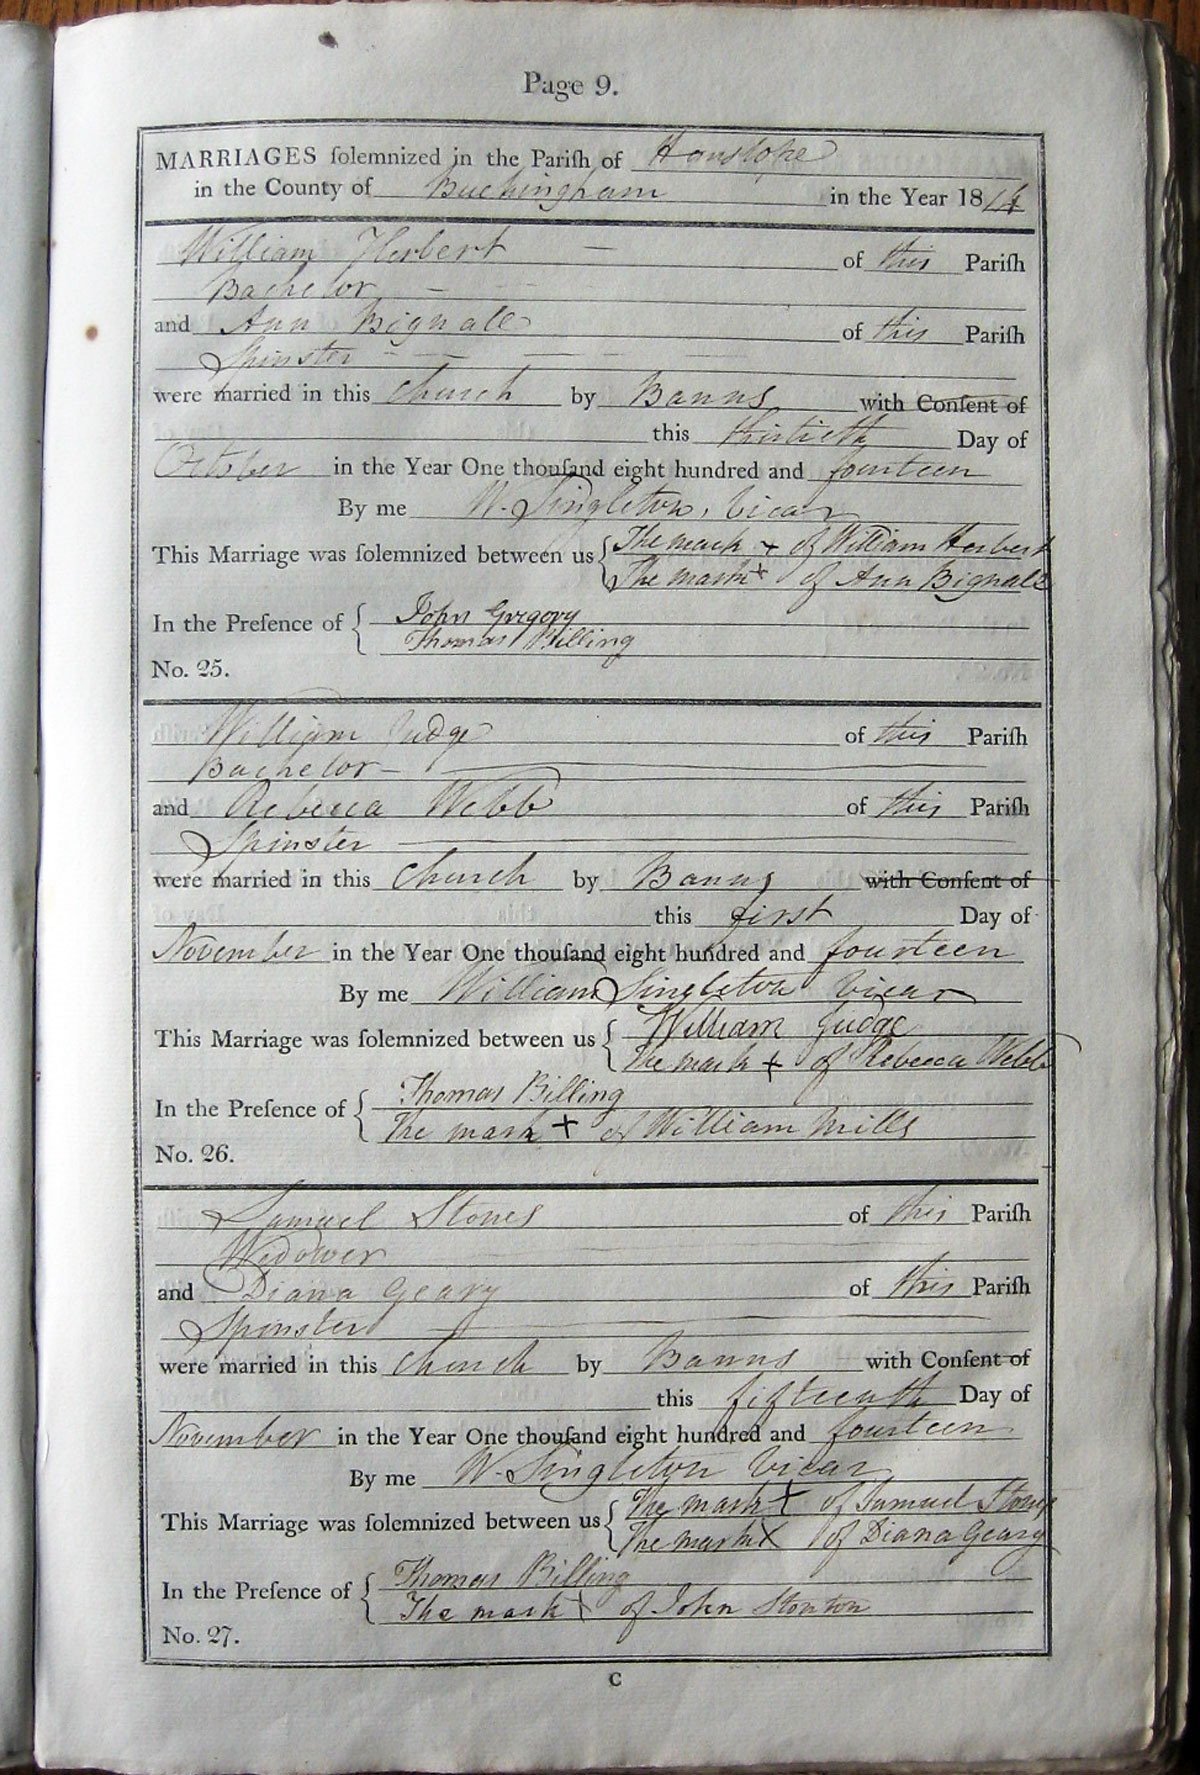 Page 9.
MARRIAGES ſolemnized in the Pariſh of Hanslope
in the County of Buckingham in the Year 1814
William Herbert of this Pariſh
Bachelor
and Ann Bignall of this Pariſh
Spinster
were married in this church by Banns with Conſent of
this thirtieth Day of
October in the Year One thouſand eight hundred and fourteen
By me W. Singleton, Vicar
This Marriage was ſolemnized between us The mark + of William Herbert
The mark + of Ann Bignall
In the Preſence of John Gregory
Thomas Billing
No. 25.
William Judge of this Pariſh
Bachelor
and Rebecca Webb of this Pariſh
Spinster
were married in this church by Banns with Conſent of
this first Day of
November in the Year One thouſand eight hundred and fourteen
By me William Singleton Vicar
This Marriage was ſolemnized between us William Judge
The mark + of Rebecca Webb
In the Preſence of Thomas Billing
The mark + of William Mills
No. 26.
Samuel Stones of this Pariſh
Widower
and Diana Geary of this Pariſh
Spinster
were married in this church by Banns with Conſent of
this fifteenth Day of
November in the Year One thouſand eight hundred and fourteen
By me W. Singleton Vicar
This Marriage was ſolemnized between us The mark + of Samuel Stones
The mark X of Diana Geary
In the Preſence of Thomas Billing
The mark + of John Stonton
No. 27.
C